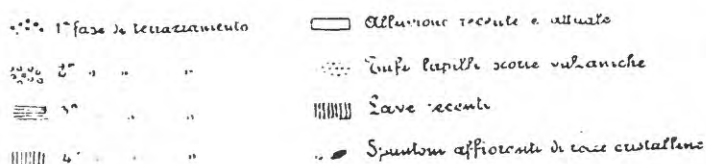 1ª fase di terrazzamento
2ª " " "
3ª " "
4ª " "
Alluvione recente e attuale
Tufi lapilli scorie vulcaniche
Lave recenti
Spuntoni affioranti di rocce cristalline